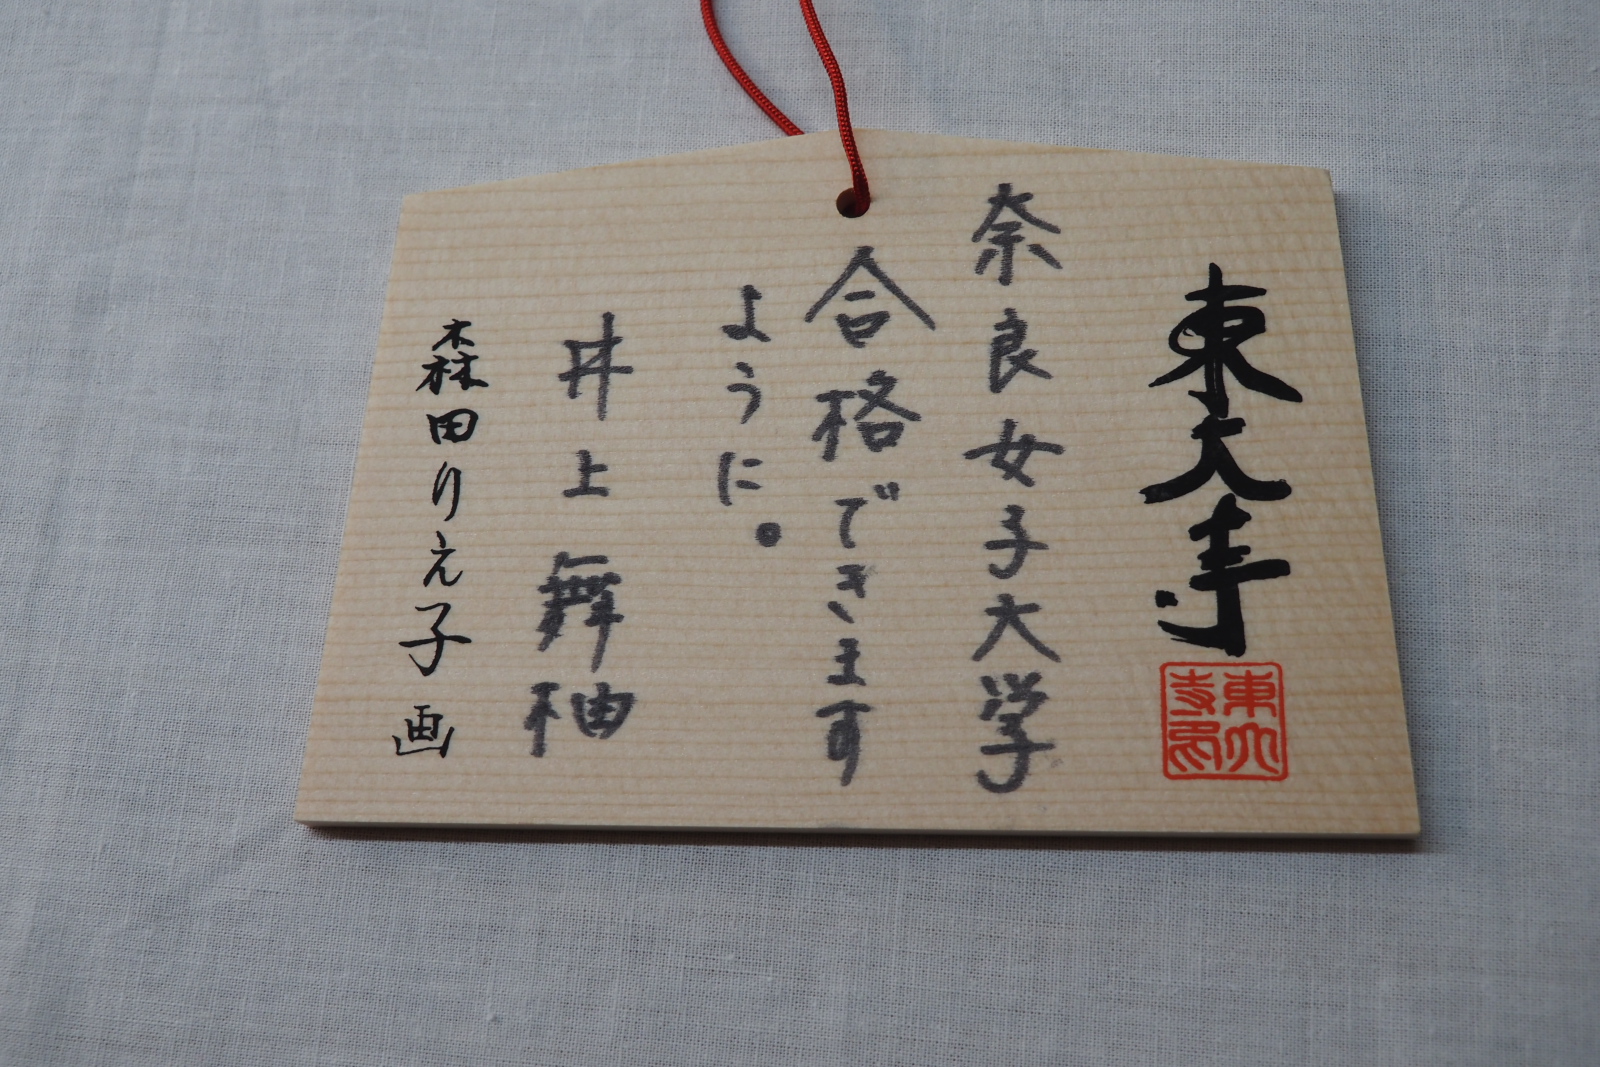 東大寺
東大寺印
奈良女子大学
合格できます
ように。
井上舞柚
森田りえ子画